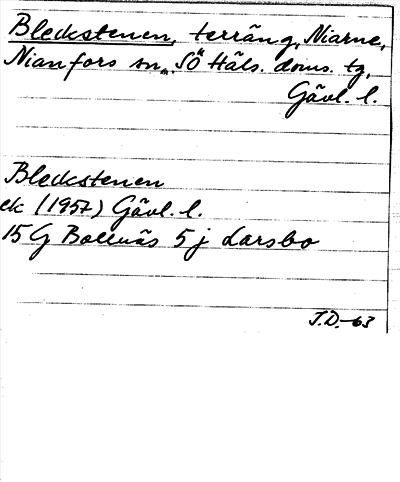 Bleckstenen, terräng, Niarne,
Nianfors sn, SÖ Häls. doms. tg,
Gävl. l.
Bleckstenen
ek (1957) Gävl. l.
15 G Bollnäs 5 j Larsbo
J.D.-63